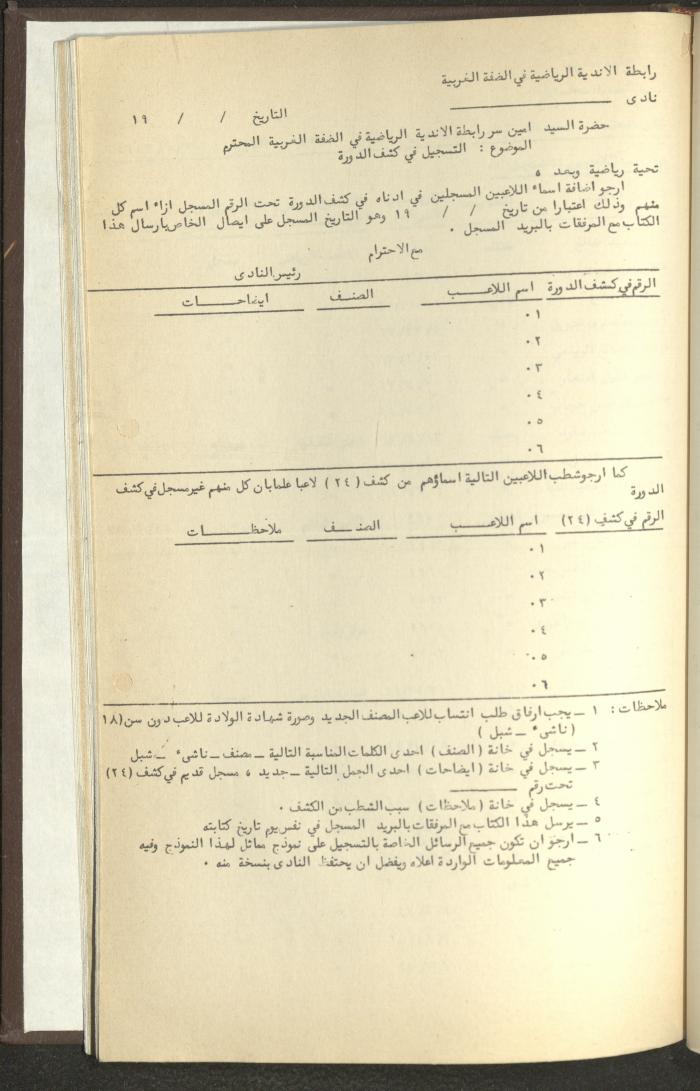 رابطة الاندية الرياضية في الضفة الغربية
نادى ـــــــــــــــ
التاريخ / / ١٩
حضرة السيد امين سر رابطة الاندية الرياضية في الضفة الغربية المحترم
الموضوع : التسجيل في كشف الدورة
تحية رياضية وبعد ،
ارجو اضافة اسماء اللاعبين المسجلين في ادناه في كشف الدورة تحت الرقم المسجل ازاء اسم كل
منهم وذلك اعتبارا من تاريخ / / ١٩ وهو التاريخ المسجل على ايصال الخاص بارسال هذا
الكتاب مع المرفقات بالبريد المسجل .
مع الاحترام
رئيس النادى
الرقم في كشف الدورة اسم اللاعـــب الصنـف ايضاحـــات
١ .
٢ .
٣ .
٤ .
٥ .
٦ .
كما ارجو شطب اللاعبين التالية اسماؤهم من كشف ( ٢٤ ) لاعبا علما بان كل منهم غير مسجل في كشف
الدورة
الرقم في كشف (٢٤) اسم اللاعـــب الصنــف ملاحظـــات
١ .
٢ .
٣ .
٤ .
٥ .
٦ .
ملاحظات : ١ ــ يجب ارفاق طلب انتساب للاعب المصنف الجديد وصورة شهادة الولادة للاعب دون سن (١٨
(ناشىء ــ شبل )
٢ ــ يسجل في خانة ( الصنف ) احدى الكلمات المناسبة التالية ــ مصنف ــ ناشىء ــ شبل
٣ ــ يسجل في خانة ( ايضاحات ) احدى الجمل التالية ــ جديد ، مسجل قديم في كشف (٢٤)
تحت رقم ـــــــــ
٤ ــ يسجل في خانة ( ملاحظات ) سبب الشطب من الكشف .
٥ ــ يرسل هذا الكتاب مع المرفقات بالبريد المسجل في نفس يوم تاريخ كتابته
٦ ــ ارجو ان تكون جميع الرسائل الخاصة بالتسجيل على نموذج مماثل لهذا النموذج وفيه
جميع المعلومات الواردة اعلاه ويفضل ان يحتفظ النادى بنسخة منه .